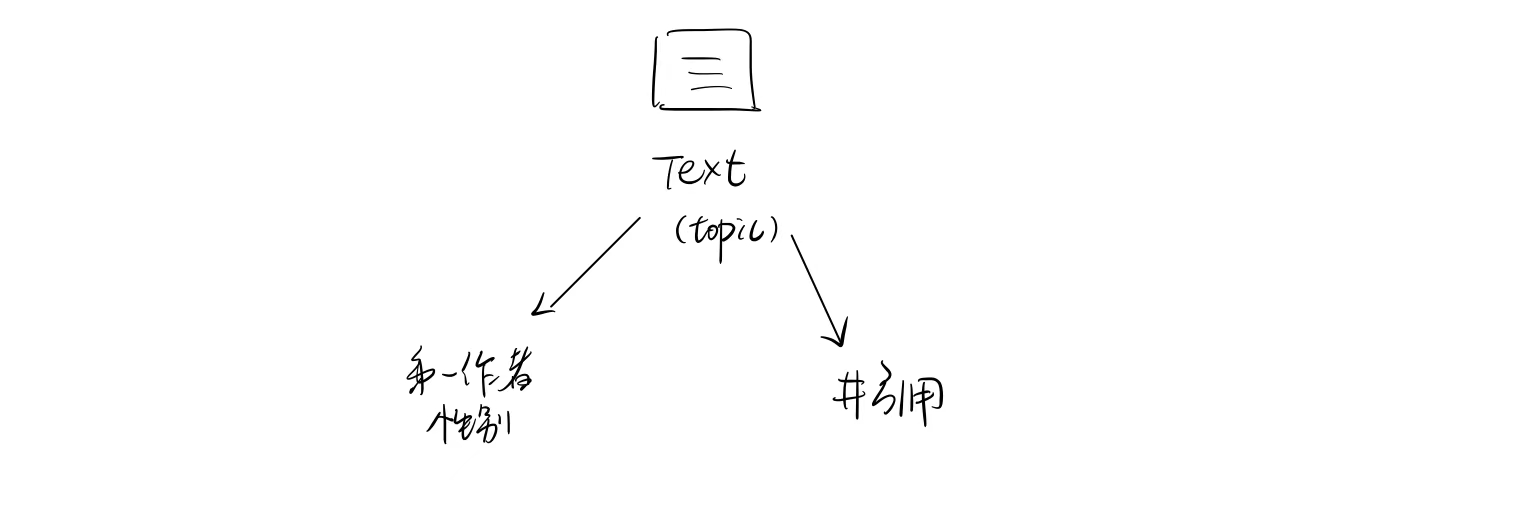 Text
(topic)
第一作者
性别
#引用